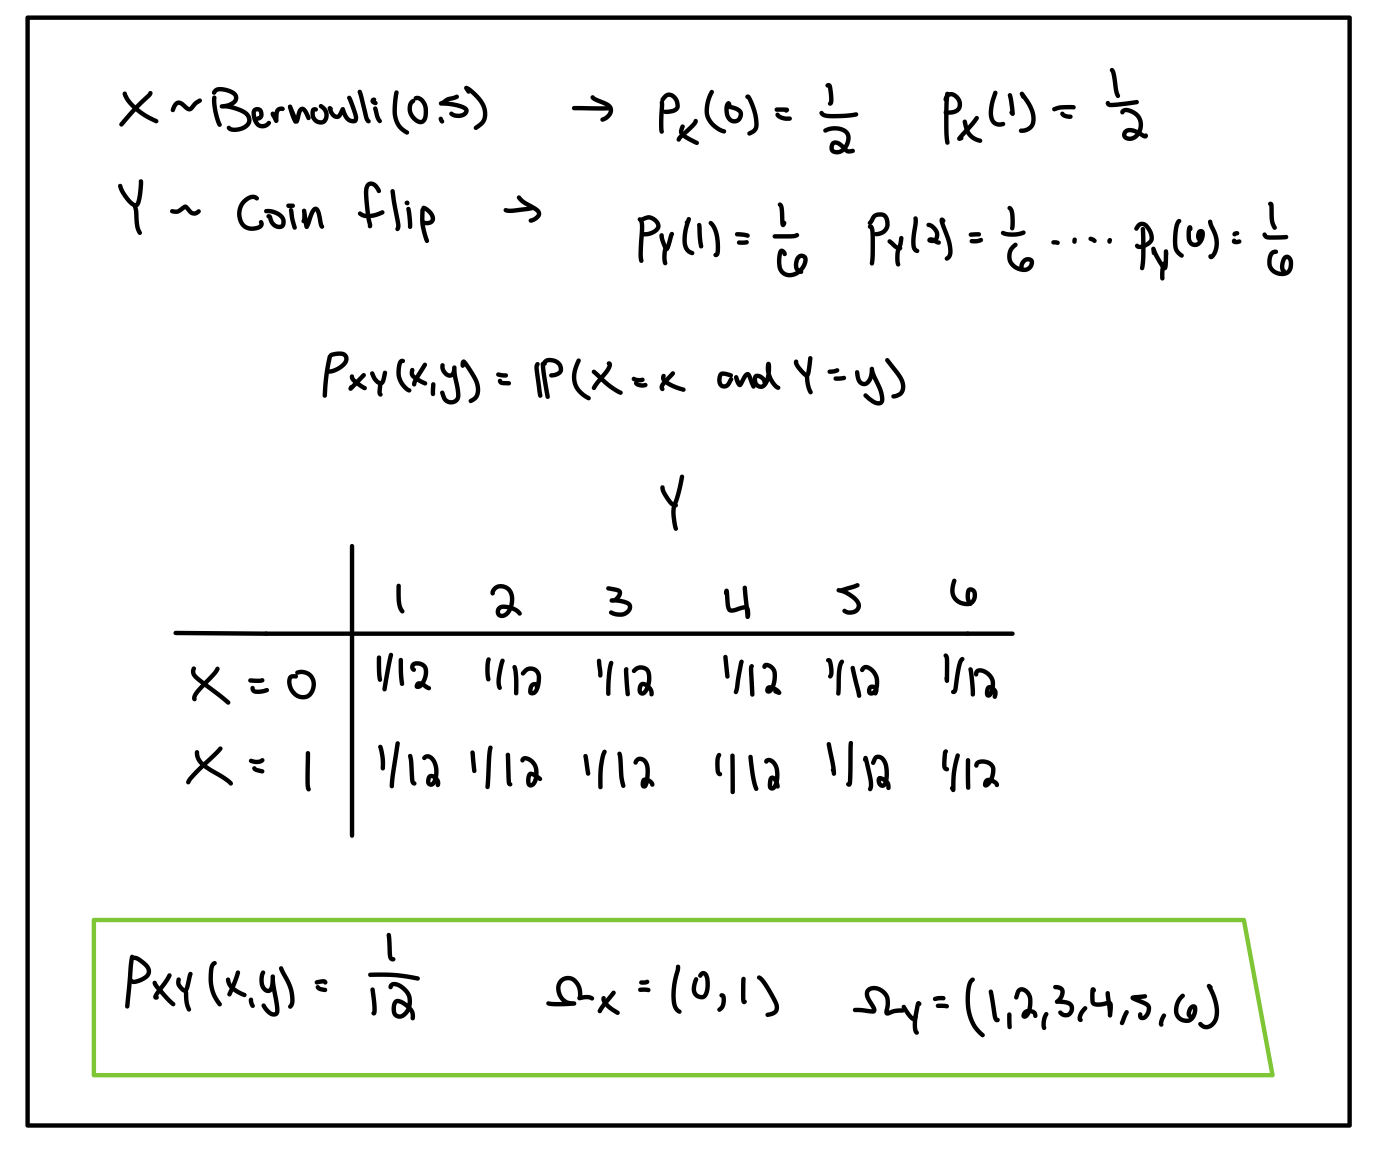 X ~ Bernoulli(0.5) → P_X(0) = 1/2 P_X(1) = 1/2
Y ~ Coin flip → P_Y(1) = 1/6 P_Y(2) = 1/6 ..... P_Y(6) = 1/6
P_XY(x,y) = ℙ(X=x and Y=y)
Y
1 2 3 4 5 6
X = 0 1/12 1/12 1/12 1/12 1/12 1/12
X = 1 1/12 1/12 1/12 1/12 1/12 1/12
P_XY(x,y) = 1/12 Ω_X = (0,1) Ω_Y = (1,2,3,4,5,6)